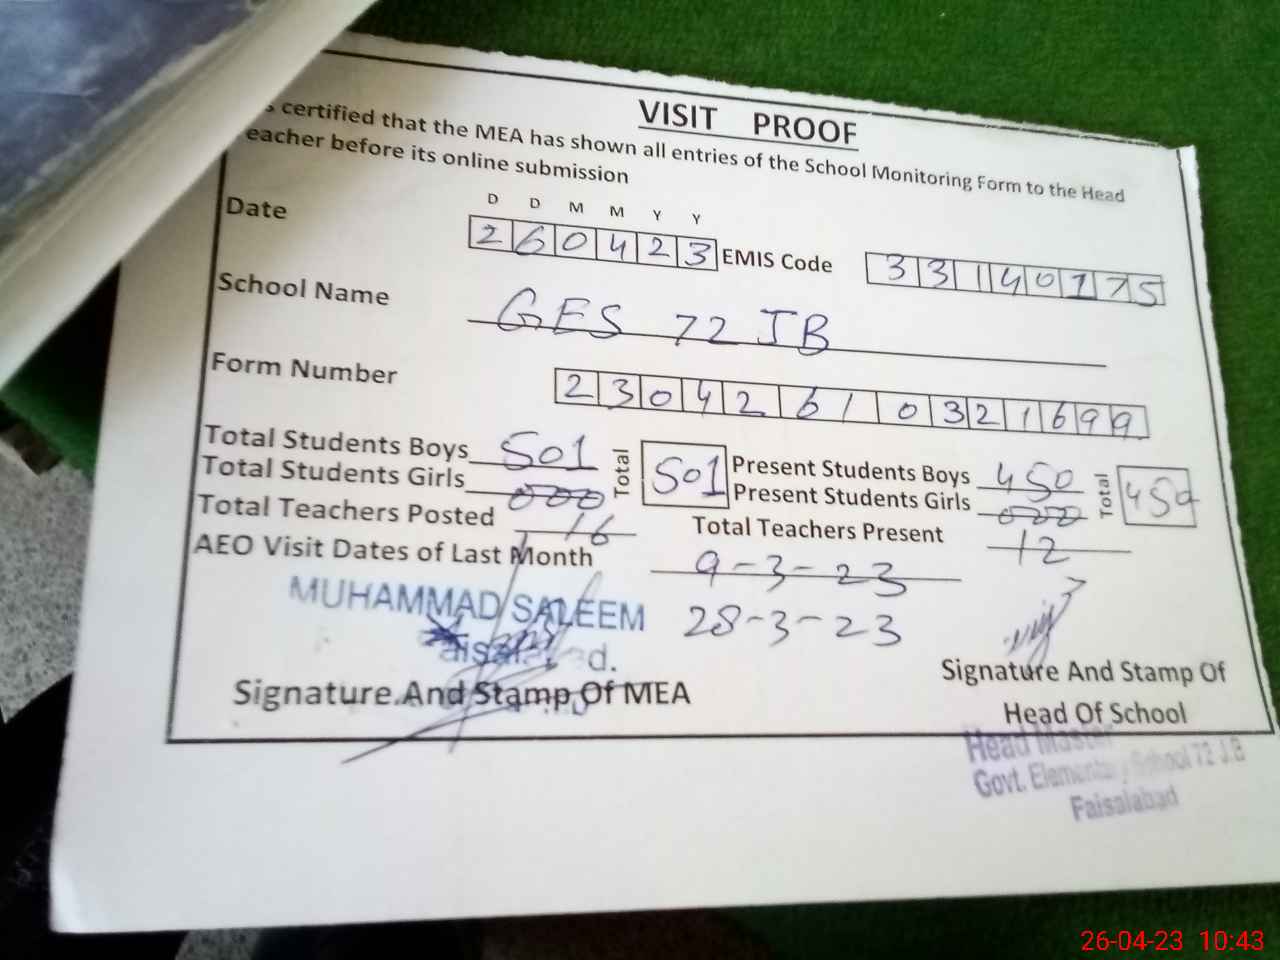 VISIT PROOF
certified that the MEA has shown all entries of the School Monitoring Form to the Head
eacher before its online submission
D D M M Y Y
Date 260423 EMIS Code 33140175
School Name GES 72 JB
Form Number 23042610321699
Total Students Boys 501 Total 501 Present Students Boys 450 Total 450
Total Students Girls 000 Present Students Girls 000
Total Teachers Posted 16 Total Teachers Present 12
AEO Visit Dates of Last Month 9-3-23
28-3-23
MUHAMMAD SALEEM
Signature And Stamp Of MEA
Signature And Stamp Of
Head Of School
Head Master
Govt. Elementary School 72 J.B
Faisalabad
26-04-23 10:43